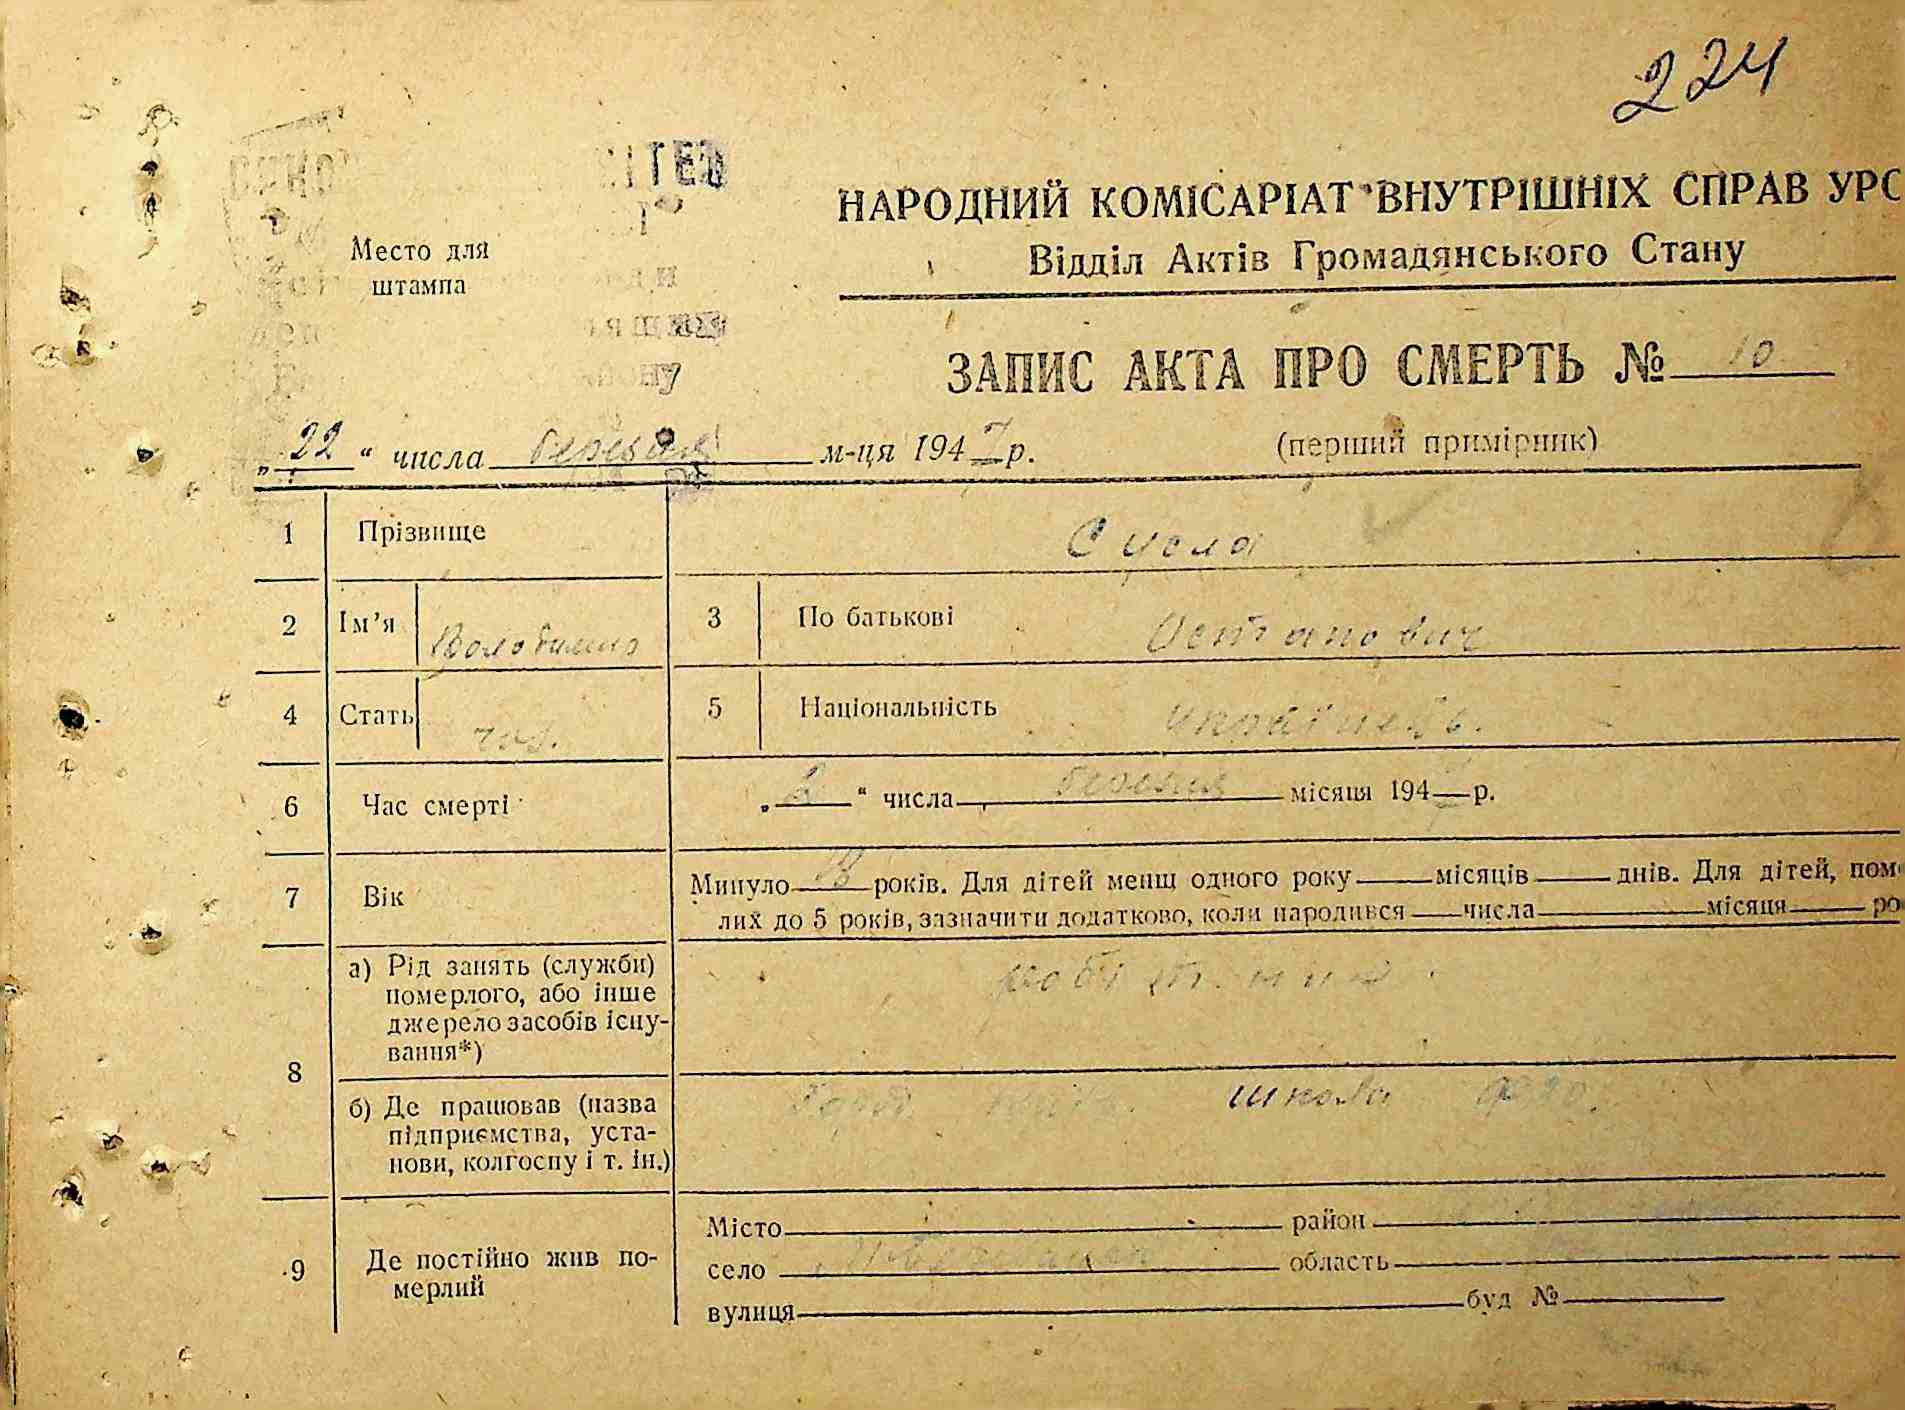 224
НАРОДНИЙ КОМІСАРІАТ ВНУТРІШНІХ СПРАВ УРС
Відділ Актів Громадянського Стану
Место для
штампа
ЗАПИС АКТА ПРО СМЕРТЬ № 10
„22“ числа березня м-ця 1947 р.
(перший примірник)
1 Прізвище Сусла
2 Ім'я Володимир 3 По батькові Остапович
4 Стать чол. 5 Національність українець.
6 Час смерті „2“ числа березня місяця 1947 р.
7 Вік Минуло 18 років. Для дітей менш одного року місяців днів. Для дітей, пом
лих до 5 років, зазначити додатково, коли народився числа місяця ро
8 а) Рід занять (служби) померлого, або інше джерело засобів існування*) робітник
б) Де працював (назва підприємства, установи, колгоспу і т. ін.) школа ФЗО.
9 Де постійно жив померлий
Місто район
село область
вулиця буд №